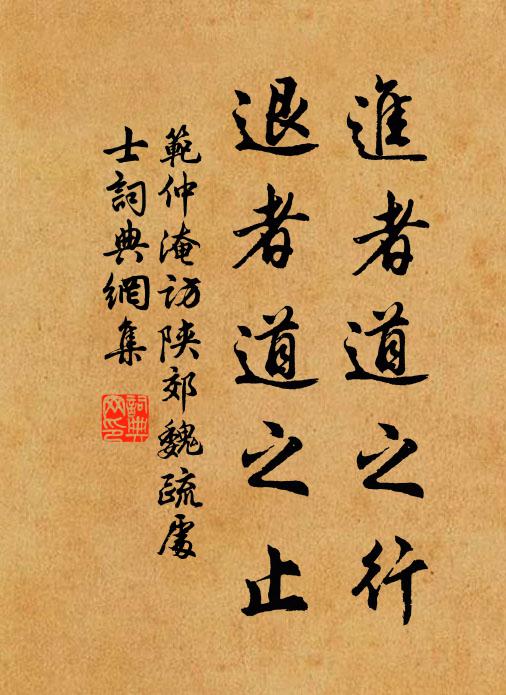 進者道之行
退者道之止
範仲淹訪陝郊魏疏處
士詞典網集
詞典
网印